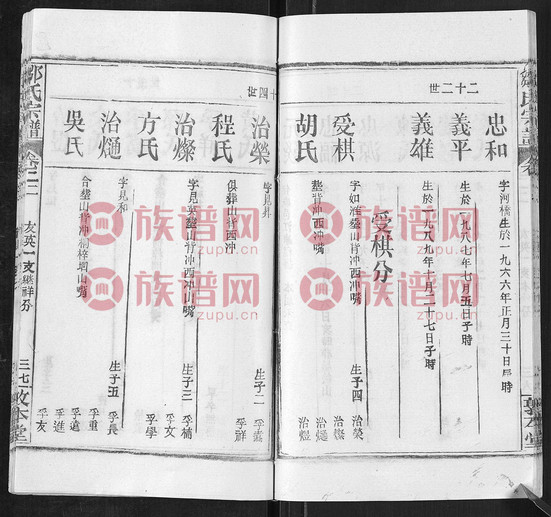 二十二世
忠和
字河橋生於一九六六年正月三十日子時
義平
生於一九八七年七月五日子時
義雄
生於一九八九年十月二十七日子時
受棋分
受棋
字如淮葬山背冲西冲嘴
生子四
治榮
治燦
治煜
胡氏
葬背冲西冲嘴
十四世
治榮
字見昇
生子二
孚祥
程氏
俱葬山背西冲
治燦
字見英葬山背冲西冲山嘴
生子三
孚楠
孚文
孚學
方氏
治熥
字見和
生子五
孚長
孚重
孚進
孚友
吳氏
合葬山背冲楠梓塆山嘴
鄒氏宗譜
卷二二
友英一支繼祥分
三七
敦本堂
族谱网
zupu.cn